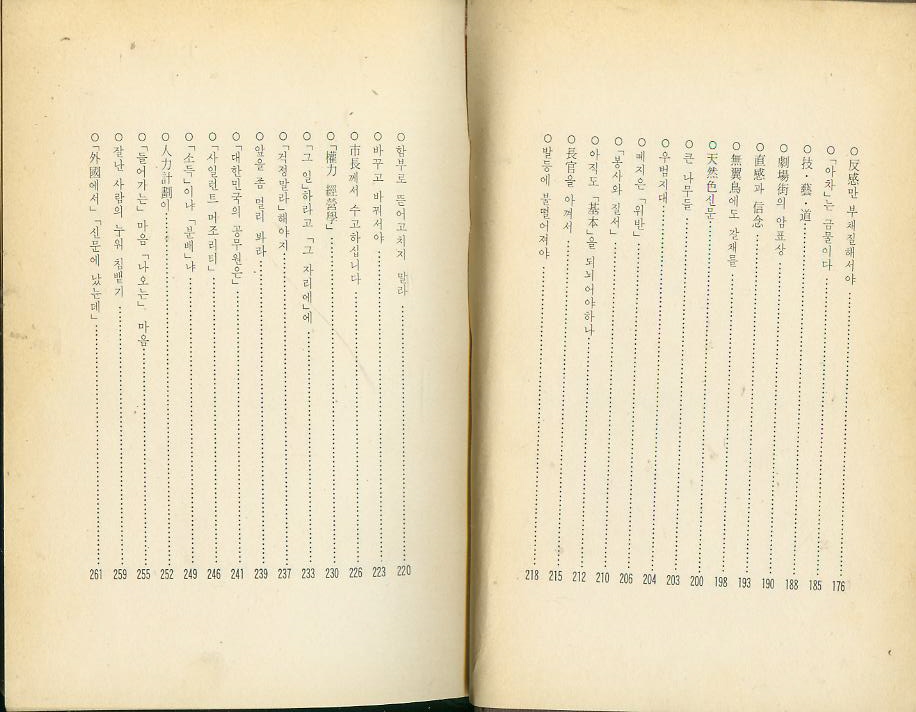 ○反感만 부채질해서야 176
○「아차」는 금물이다 185
○技・藝・道 188
○劇場街의 암표상 190
○直感과 信念 193
○無翼鳥에도 갈채를 198
○天然色신문 200
○큰 나무들 203
○우범지대 204
○찌지은「위반」 206
○「봉사와 질서」 210
○아직도「基本」을 되뇌어야하나 212
○長官을 아껴서 215
○발등에 불떨어져야 218
○함부로 뜯어고치지 말라 220
○바꾸고 바꿔서야 223
○市長께서 수고하십니다 226
○「權力 經營學」 230
○「그 일」하라고「그 자리에」에 233
○「걱정말라」해야지 237
○앞을 좀 멀리 봐라 239
○「대한민국의 공무원은」 241
○「사일런트 머조리티」 246
○「소득」이냐「분배」냐 249
○人力計劃이 252
○「들어가는」마음「나오는」마음 255
○잘난 사람의 누워 침뱉기 259
○「外國에서」「신문에 났는데」 261